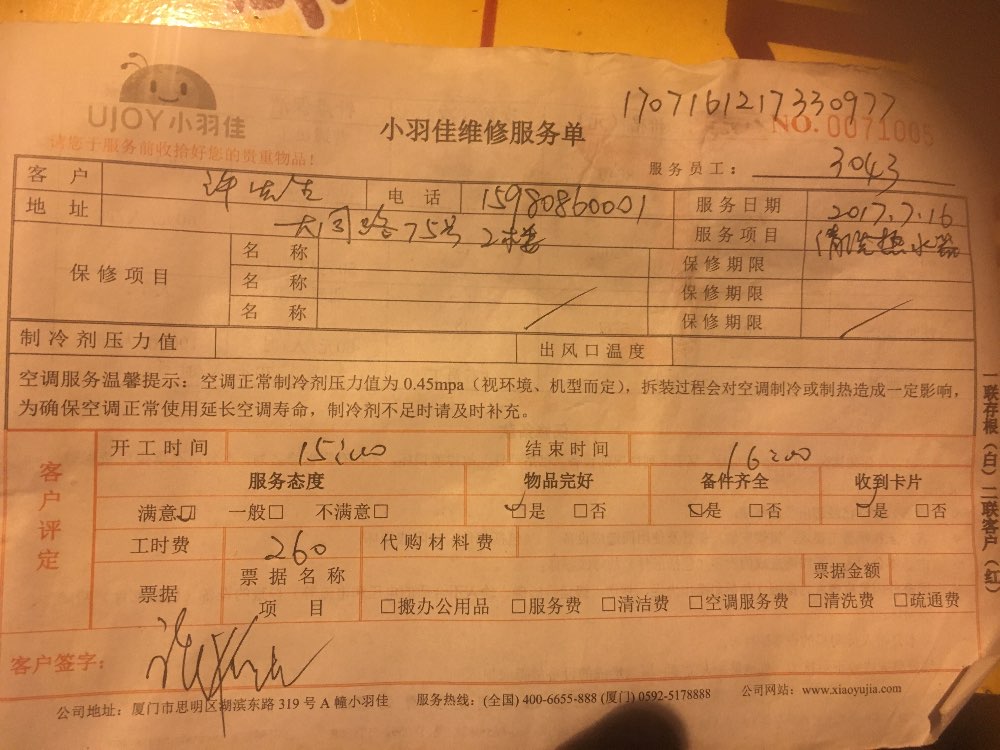 UJOY小羽佳
请您于服务前收拾好您的贵重物品！
小羽佳维修服务单
1707161217330977
NO. 0071005
服务员工： 3043
客 户 许先生 电 话 15980860001 服务日期 2017.7.16
地 址 大同路75号2楼 服务项目 清洗热水器
保修项目 名 称 保修期限
名 称 保修期限
名 称 保修期限
制冷剂压力值 出风口温度
空调服务温馨提示：空调正常制冷剂压力值为 0.45mpa（视环境、机型而定），拆装过程会对空调制冷或制热造成一定影响，
为确保空调正常使用延长空调寿命，制冷剂不足时请及时补充。
客户评定
开工时间 15:00 结束时间 16:00
服务态度 物品完好 备件齐全 收到卡片
满意☑ 一般□ 不满意□ ☑是 □否 ☑是 □否 ☑是 □否
工时费 260 代购材料费
票据 票据名称 票据金额
项 目 □搬办公用品 □服务费 □清洁费 □空调服务费 □清洗费 □疏通费
客户签字：
公司地址：厦门市思明区湖滨东路 319 号 A 幢小羽佳 服务热线：(全国) 400-6655-888 (厦门) 0592-5178888 公司网站：www.xiaoyujia.com
一联存根（白）二联客户（红）